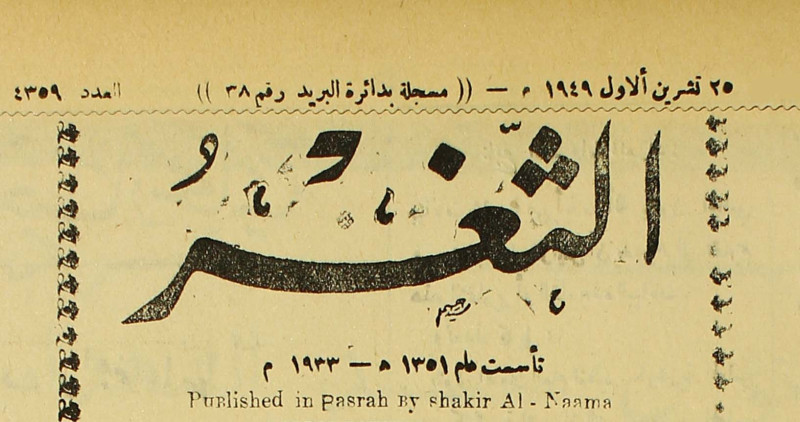 ٢٥ تشرين ألاول ١٩٤٩ م — (( مسجلة بدائرة البريد رقم ٣٨ )) العدد ٤٣٥٩
الثغر
تأسست عام ١٣٥١ ه — ١٩٣٣ م
Published in Basrah By shakir Al - Naama